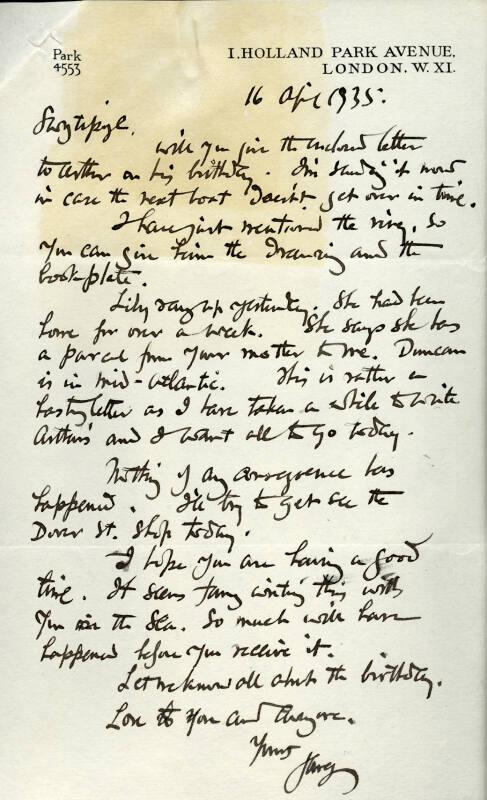 Park
4553
1, HOLLAND PARK AVENUE,
LONDON. W. XI.
16 Apl 1935.
will you give the enclosed letter
to Arthur on his birthday. I'm sending it now
in case the next boat doesn't get over in time.
I have just mentioned the ring, so
you can give him the drawing and the
bookplate.
Lily rang up yesterday. She had been
home for over a week. She says she has
a parcel from your mother to me. Duncan
is in mid-atlantic. This is rather a
hasty letter as I have taken a while to write
Arthur's and I want all to go today.
Nothing of any consequence has
happened. I'll try to get see the
Dover St. shop today.
I hope you are having a good
time. It seems funny writing this with
you on the sea. So much will have
happened before you receive it.
Let me know all about the birthday.
Love to you and
Yours